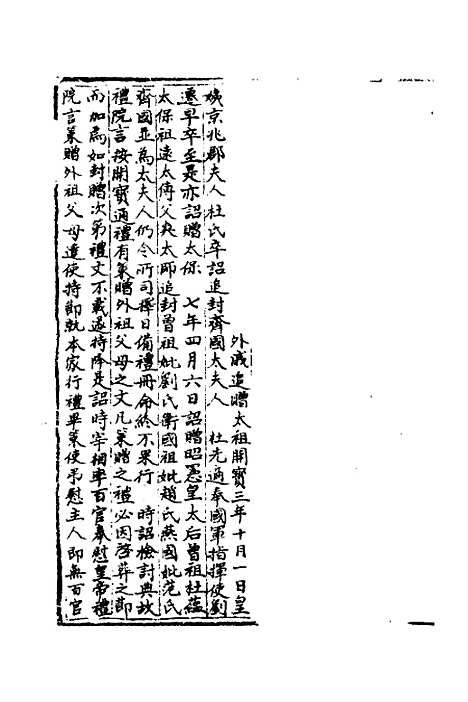 外戚追贈太祖開寶三年十月一日皇
姨京兆郡夫人杜氏卒詔追封齊國太夫人　杜先適奉國軍指揮使劉
遷早卒至是亦詔贈太保　七年四月六日詔贈昭憲皇太后曾祖杜蘊
太保祖遠太傅父爽太師追封曾祖妣劉氏衛國祖妣趙氏燕國妣范氏
齊國並為太夫人仍令所司擇日備禮冊命終不果行　時詔檢討典故
禮院言按開寶通禮有策贈外祖父母之文凡策贈之禮必因啓葬之節
而加焉如封贈次第禮文不載遂特降是詔時宰相率百官奉慰皇帝禮
院言策贈外祖父母遣使持節就本家行禮畢策使弔慰主人即無百官